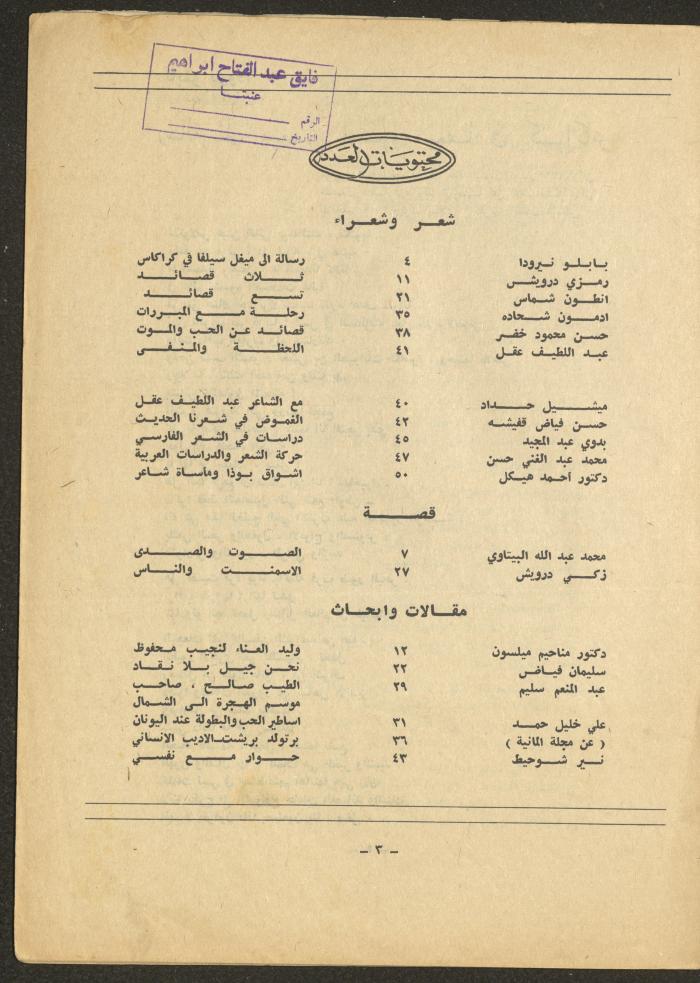 فايق عبد الفتاح ابراهيم
عنبتا
الرقم
التاريخ
محتويات العدد
شعر وشعراء
بابلو نيرودا ٤ رسالة الى ميغل سيلفا في كراكاس
رمزي درويش ١١ ثلاث قصائد
انطون شماس ٢١ تسع قصائد
ادمون شحاده ٣٥ رحلة مع المبررات
حسن محمود خضر ٣٨ قصائد عن الحب والموت
عبد اللطيف عقل ٤١ اللحظة والمنفى
ميشيل حداد ٤٠ مع الشاعر عبد اللطيف عقل
حسن فياض قفيشه ٤٢ الغموض في شعرنا الحديث
بدوي عبد المجيد ٤٥ دراسات في الشعر الفارسي
محمد عبد الغني حسن ٤٧ حركة الشعر والدراسات العربية
دكتور أحمد هيكل ٥٠ اشواق بوذا ومأساة شاعر
قصة
محمد عبد الله البيتاوي ٧ الصوت والصدى
زكي درويش ٢٧ الاسمنت والناس
مقالات وابحاث
دكتور مناحيم ميلسون ١٢ وليد العناء لنجيب محفوظ
سليمان فياض ٢٢ نحن جيل بلا نقاد
عبد المنعم سليم ٢٩ الطيب صالح ، صاحب
موسم الهجرة الى الشمال
علي خليل حمد ٣١ اساطير الحب والبطولة عند اليونان
( عن مجلة المانية ) ٣٦ برتولد بريشت الاديب الانساني
نير شوحيط ٤٣ حوار مع نفسي
– ٣ –